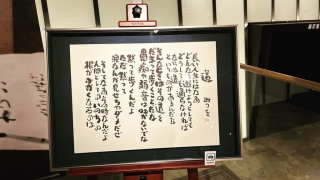 道 みつを
長い人生にはなあ
どんなに避けようとしても
どうしても通らなければ
ならぬ道
があるんだな
そんなときはその道を
黙って歩くことだな
愚痴や弱音は吐かないでな
黙って歩くんだよ
ただ黙って
涙なんか見せちゃダメだぜ
そしてなあその時なんだよ
人間としてのいのちの
根がふかくなるのは